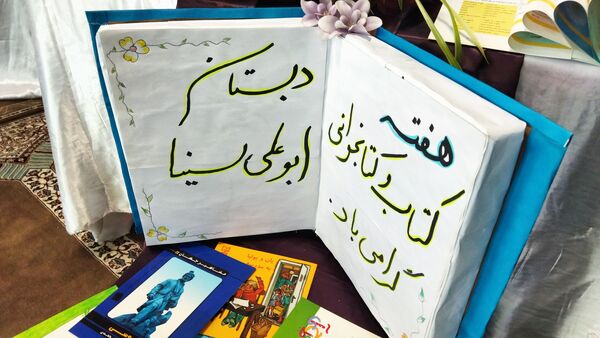 هفته
کتاب و کتابخوانی
گرامی باد.
دبستان
ابوعلی سینا